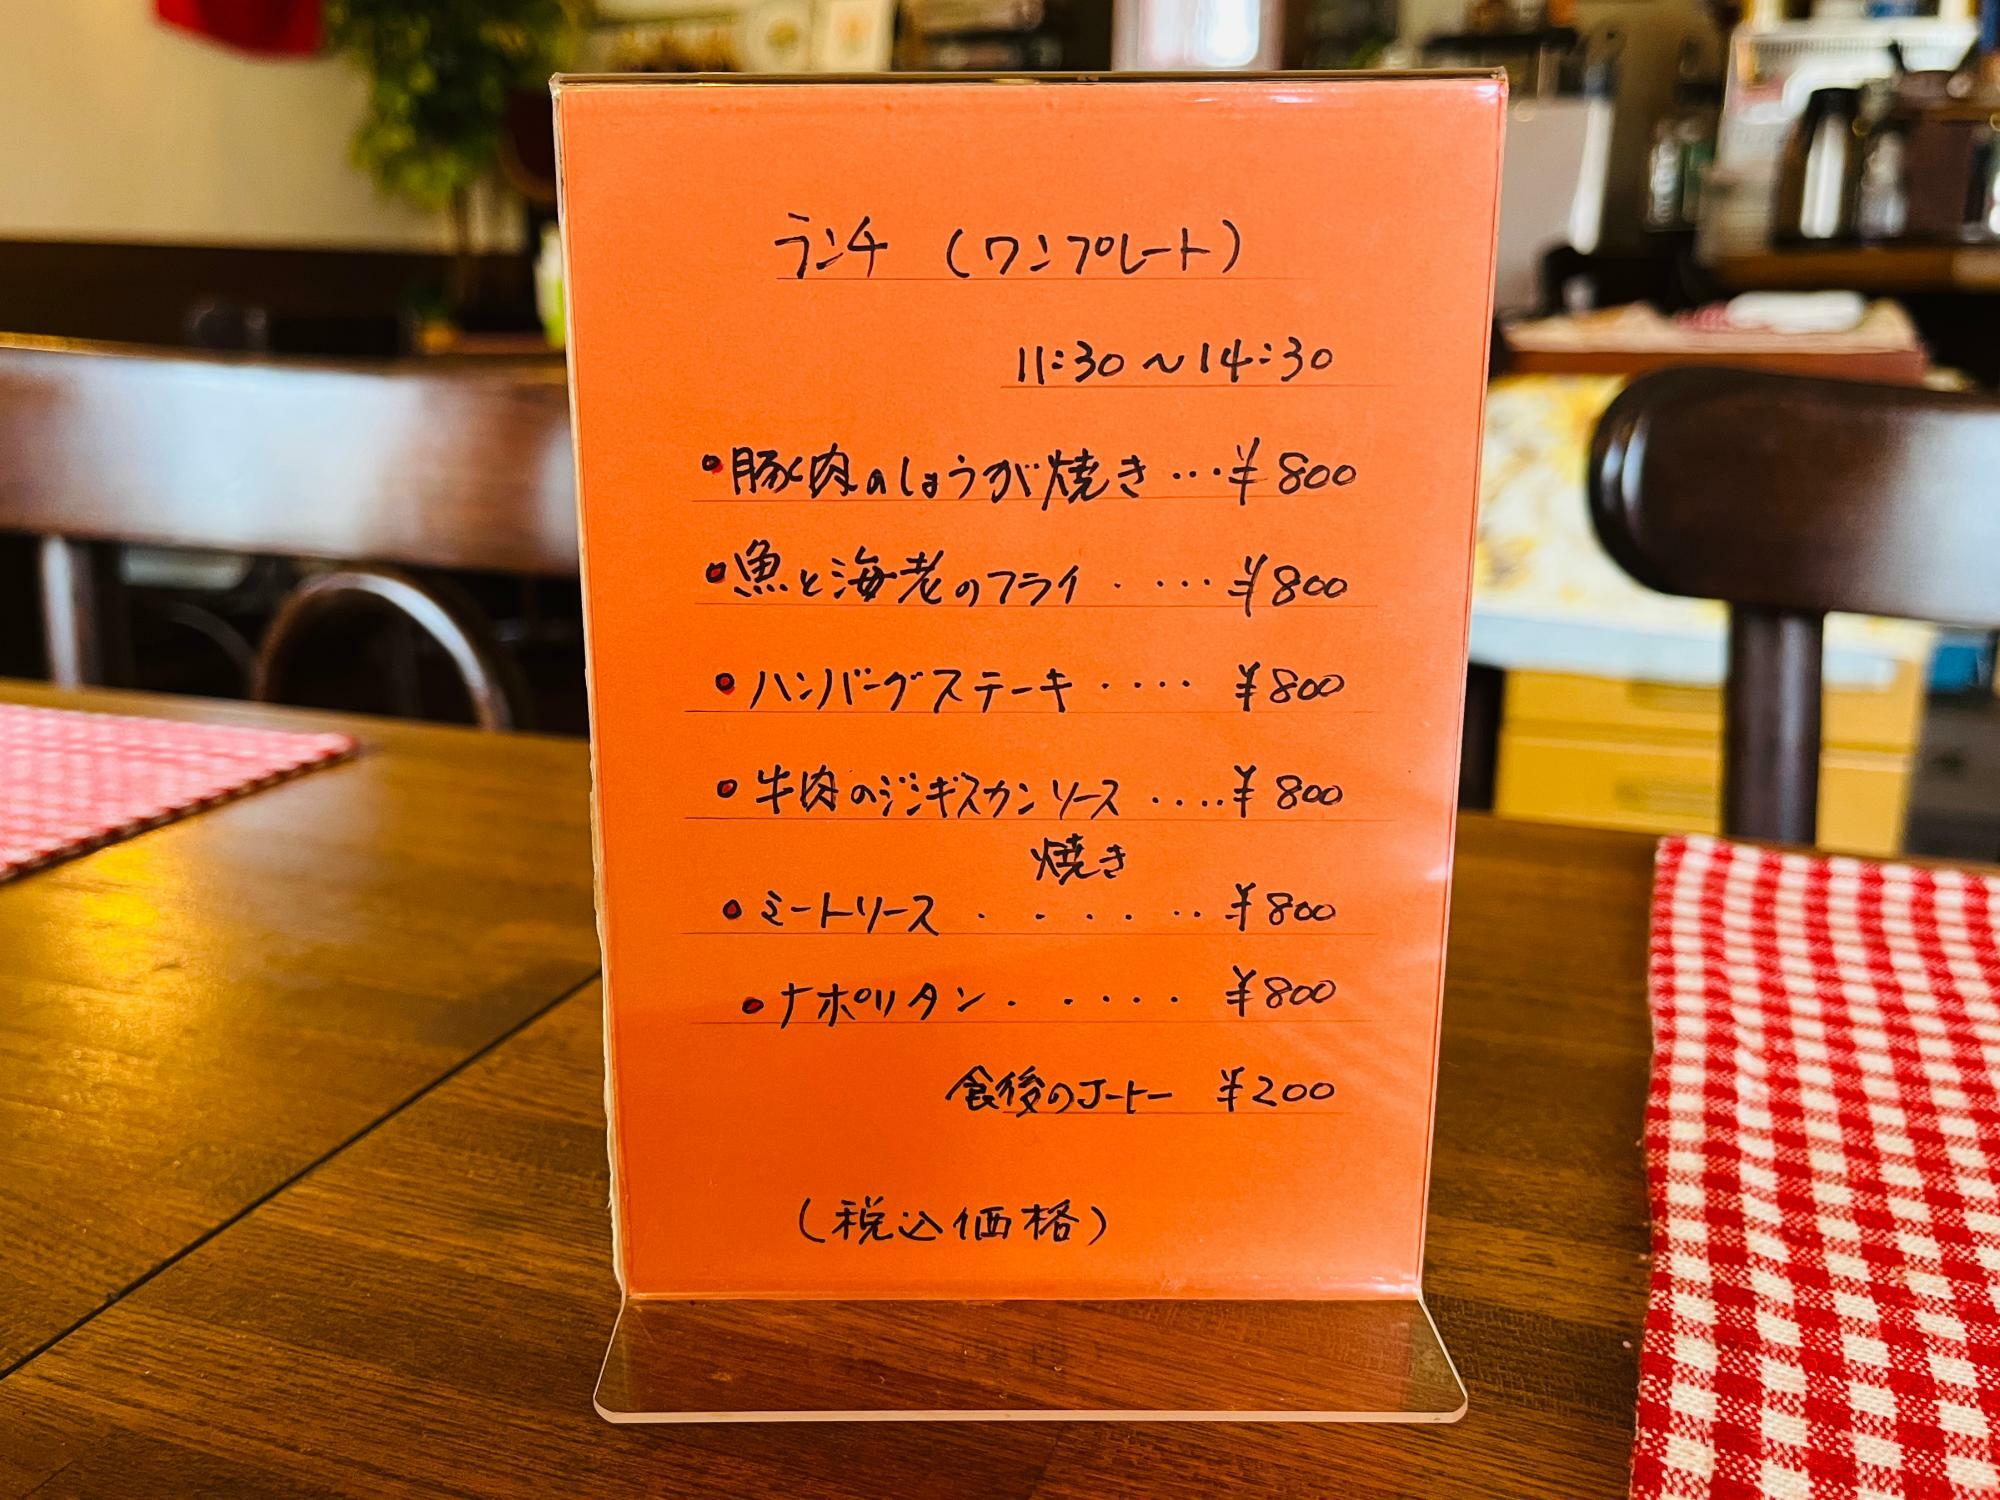 ランチ (ワンプレート)
11:30～14:30
・豚肉のしょうが焼き…¥800
・魚と海老のフライ・・・・¥800
・ハンバーグステーキ・・・・¥800
・牛肉のジンギスカンソース・・・・¥800
焼き
・ミートソース・・・・・・¥800
・ナポリタン・・・・・¥800
食後のコーヒー ¥200
(税込価格)